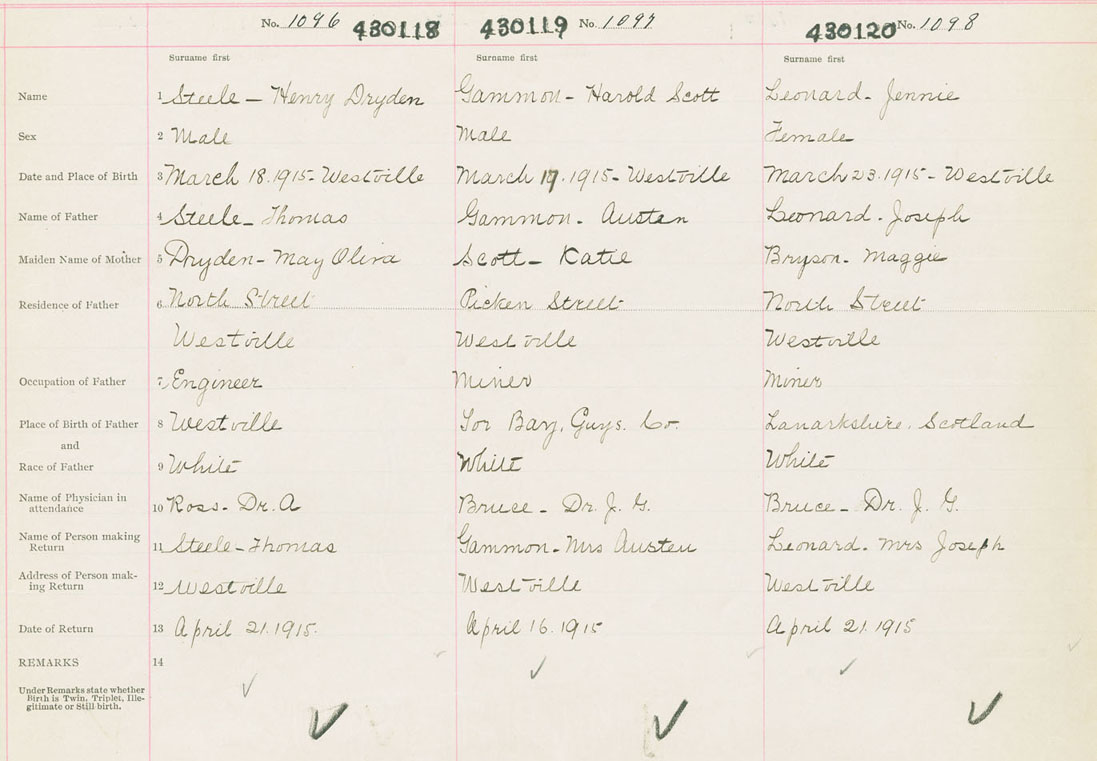 No. 1096 430118 430119 No. 1097 430120 No. 1098
Surname first Surname first Surname first
Name 1 Steele - Henry Dryden Gammon - Harold Scott Leonard - Jennie
Sex 2 Male Male Female
Date and Place of Birth 3 March 18.1915 - Westville March 17.1915 - Westville March 23.1915 - Westville
Name of Father 4 Steele - Thomas Gammon - Austen Leonard - Joseph
Maiden Name of Mother 5 Dryden - May Oliva Scott - Katie Bryson - Maggie
Residence of Father 6 North Street Picken Street North Street
Westville Westville Westville
Occupation of Father 7 Engineer Miner Miner
Place of Birth of Father 8 Westville Tor Bay, Guys. Co. Lanarkshire. Scotland
and
Race of Father 9 White White White
Name of Physician in
attendance 10 Ross - Dr. A Bruce - Dr. J. G. Bruce - Dr. J. G.
Name of Person making
Return 11 Steele - Thomas Gammon - Mrs Austen Leonard - Mrs Joseph
Address of Person mak-
ing Return 12 Westville Westville Westville
Date of Return 13 April 21.1915. April 16.1915 April 21.1915
REMARKS 14
Under Remarks state whether
Birth is Twin, Triplet, Ille-
gitimate or Still-birth.